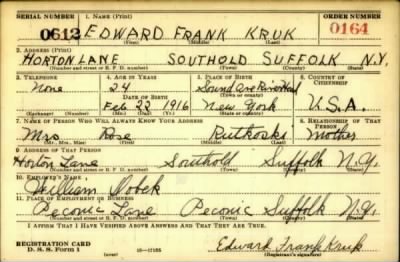 SERIAL NUMBER 1. NAME (Print) ORDER NUMBER
0612 EDWARD FRANK KRUK 0164
(First) (Middle) (Last)
2. ADDRESS (Print)
HORTON LANE SOUTHOLD SUFFOLK N.Y.
(Number and street or R. F. D. number) (Town) (County) (State)
3. TELEPHONE 4. AGE IN YEARS 5. PLACE OF BIRTH 6. COUNTRY OF CITIZENSHIP
None 24 Sound Ave Riverhead
DATE OF BIRTH (Town or county)
Feb 22 1916 New York U.S.A.
(Exchange) (Number) (Mo.) (Day) (Yr.) (State or country)
7. NAME OF PERSON WHO WILL ALWAYS KNOW YOUR ADDRESS 8. RELATIONSHIP OF THAT PERSON
Mrs Rose Rutkoski Mother
(Mr., Mrs., Miss) (First) (Middle) (Last)
9. ADDRESS OF THAT PERSON
Horton Lane Southold Suffolk N.Y.
(Number and street or R. F. D. number) (Town) (County) (State)
10. EMPLOYER'S NAME
William
11. PLACE OF EMPLOYMENT OR BUSINESS
Peconic Lane Peconic Suffolk N.Y.
(Number and street or R. F. D. number) (Town) (County) (State)
I AFFIRM THAT I HAVE VERIFIED ABOVE ANSWERS AND THAT THEY ARE TRUE.
REGISTRATION CARD Edward Frank Kruk
D. S. S. Form 1 (over) (Registrant's signature)